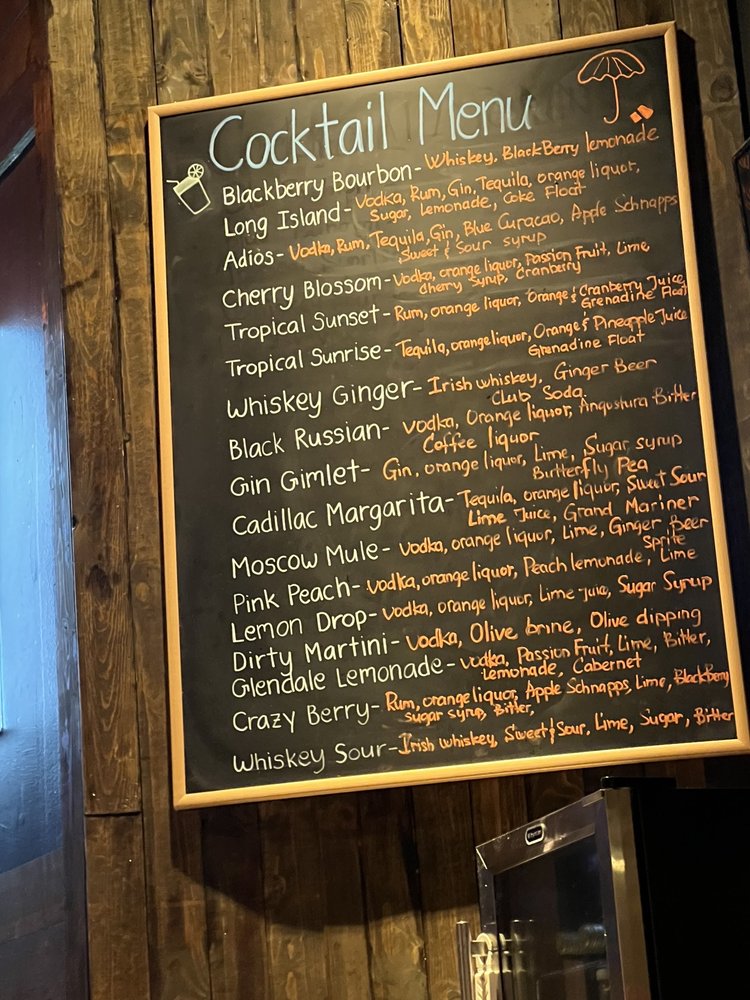 Cocktail Menu
Blackberry Bourbon - Whiskey, BlackBerry lemonade
Long Island - Vodka, Rum, Gin, Tequila, orange liquor,
Sugar, Lemonade, Coke Float
Adios - Vodka, Rum, Tequila, Gin, Blue Curacao, Apple Schnapps
Sweet & Sour syrup
Cherry Blossom - Vodka, orange liquor, Passion Fruit, Lime,
Cherry Syrup, Cranberry
Tropical Sunset - Rum, orange liquor, Orange & Cranberry Juice,
Grenadine Float
Tropical Sunrise - Tequila, orange liquor, Orange & Pineapple Juice
Grenadine Float
Whiskey Ginger - Irish whiskey, Ginger Beer
Club Soda
Black Russian - Vodka, Orange liquor, Angustura Bitter
Coffee liquor
Gin Gimlet - Gin, orange liquor, Lime, Sugar syrup
Butterfly Pea
Cadillac Margarita - Tequila, orange liquor, Sweet Sour
Lime Juice, Grand Mariner
Moscow Mule - Vodka, orange liquor, Lime, Ginger Beer
Sprite
Pink Peach - Vodka, orange liquor, Peach lemonade, Lime
Lemon Drop - Vodka, orange liquor, Lime, Sugar Syrup
Dirty Martini - Vodka, Olive brine, Olive dipping
Glendale Lemonade - Vodka, Passion Fruit, Lime, Bitter,
Lemonade, Cabernet
Crazy Berry - Rum, orange liquor, Apple Schnapps, Lime, BlackBerry
sugar syrup, Bitter,
Whiskey Sour - Irish whiskey, Sweet & Sour, Lime, Sugar, Bitter